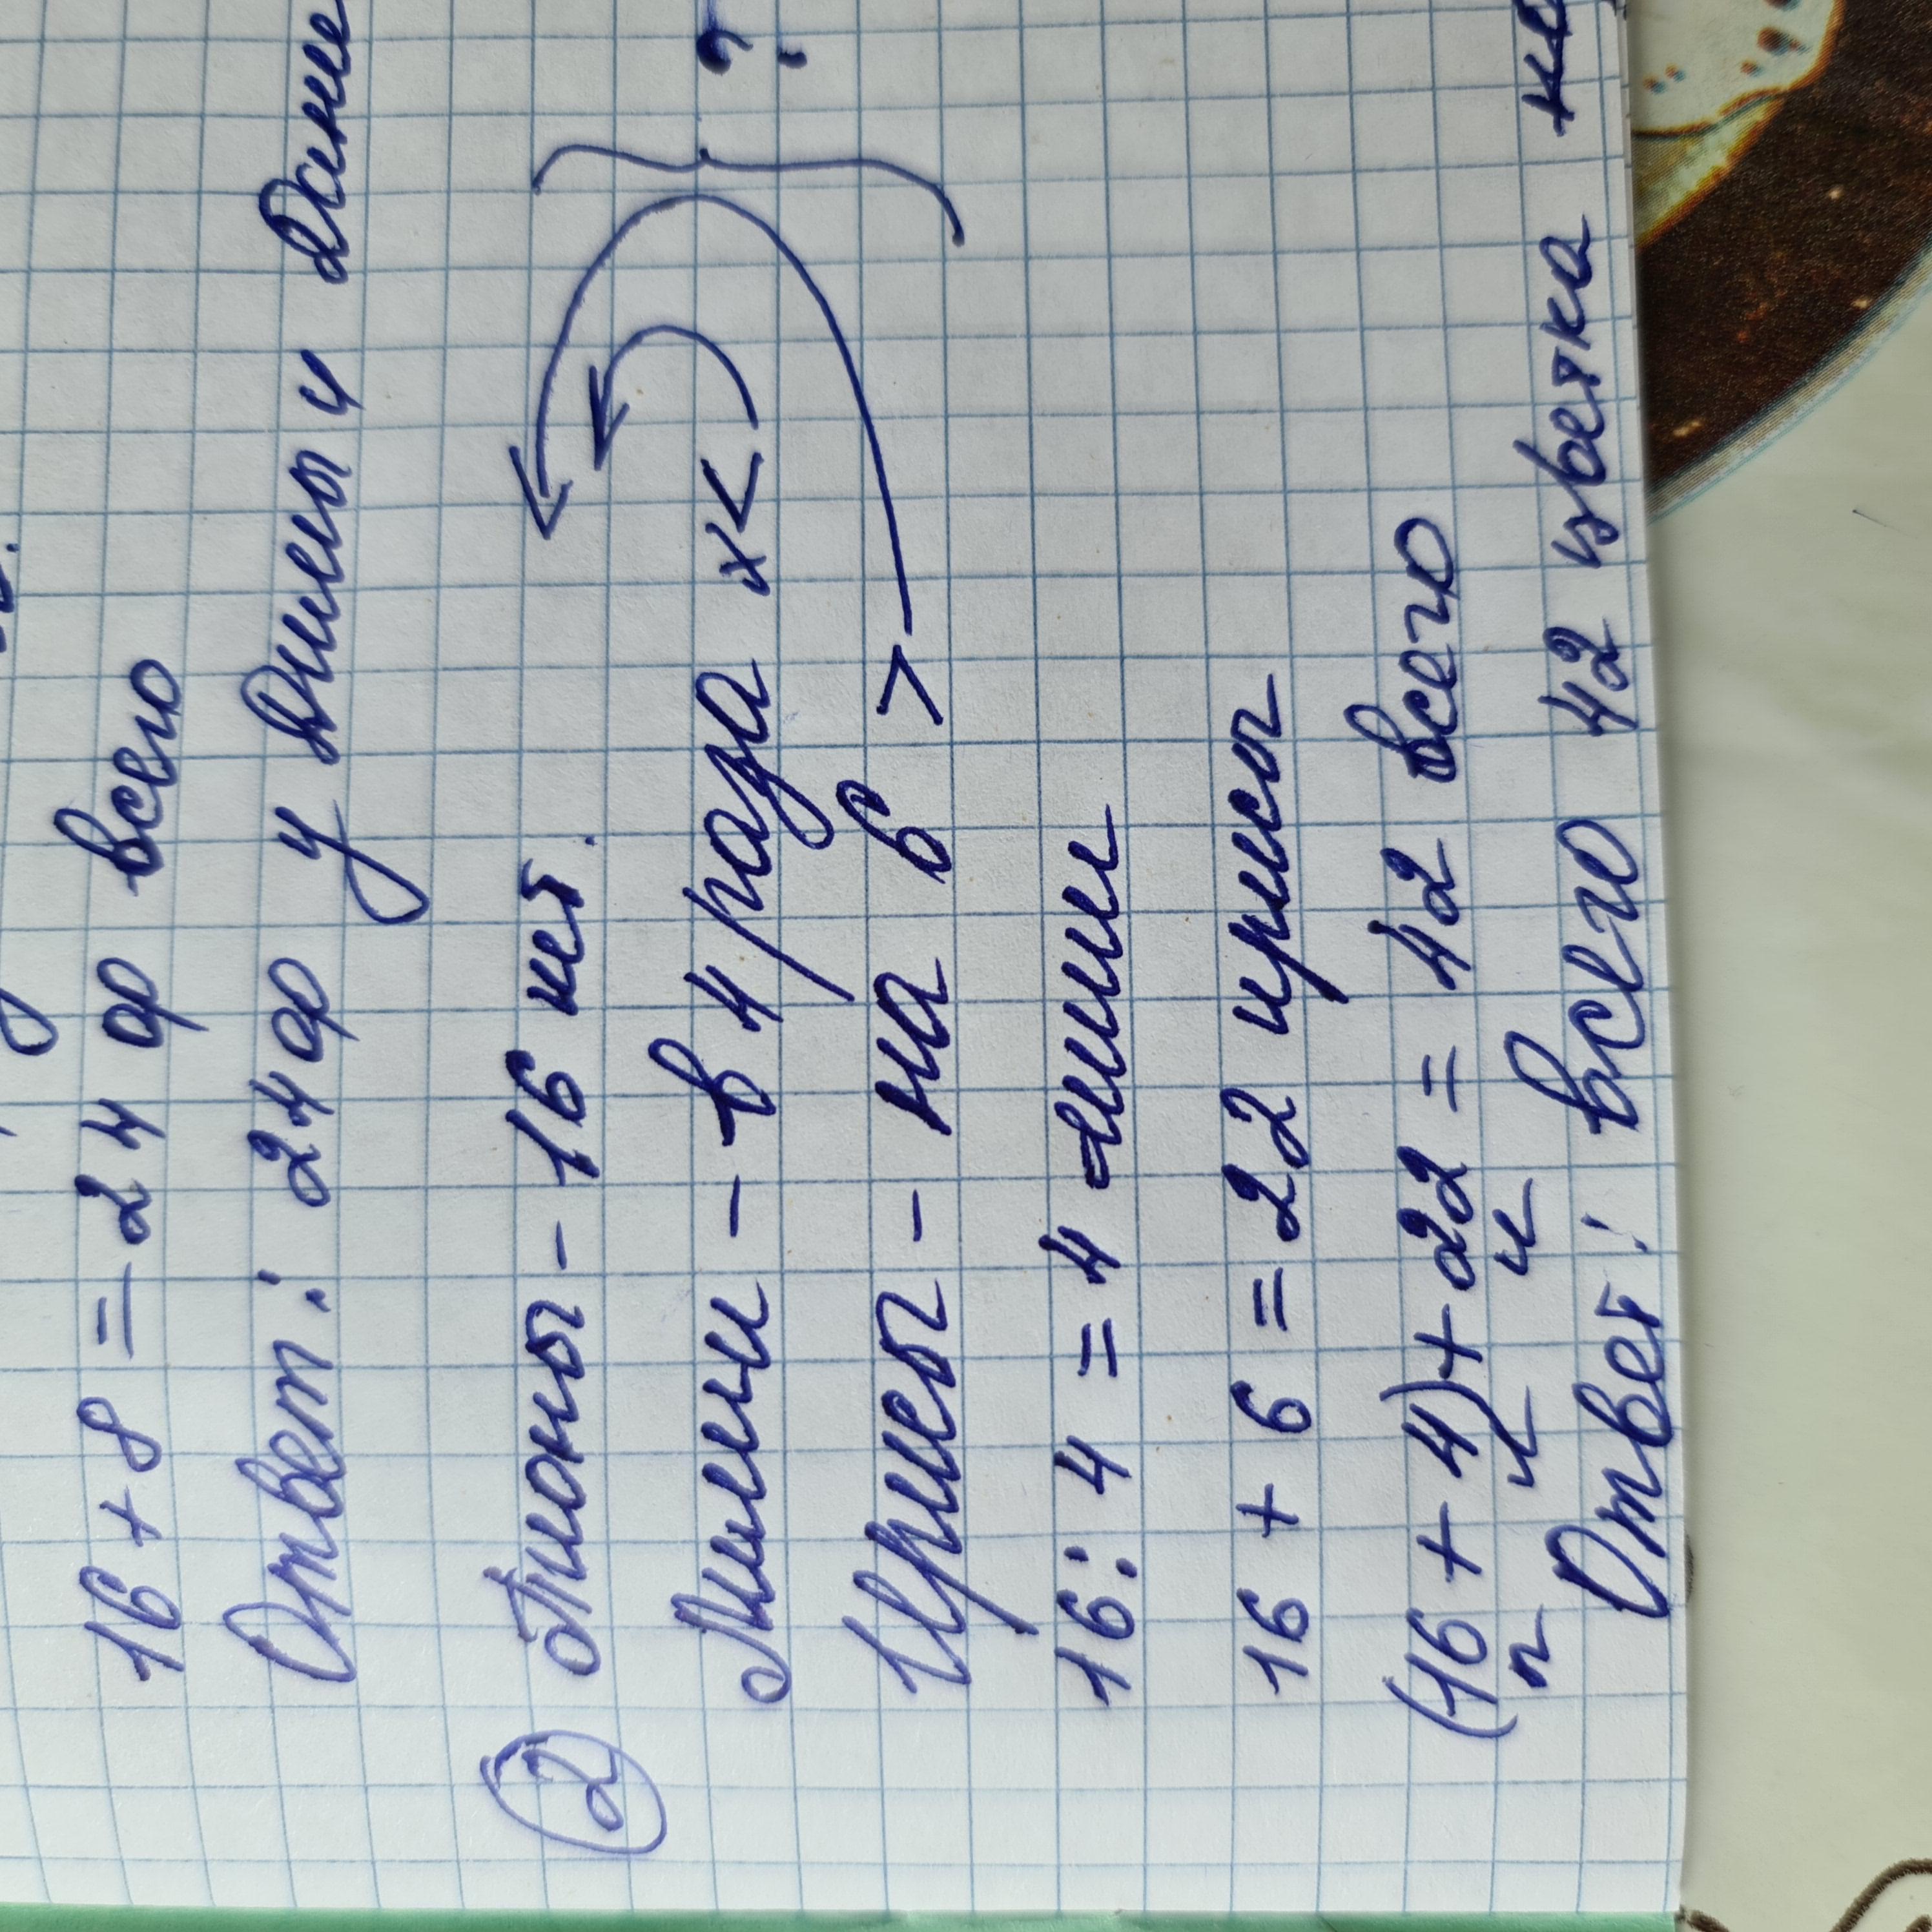 16 + 8 = 24 ор всего
Ответ: 24 ор у Димы и Дани
② Пионы - 16 шт.
Лилии - в 4 раза <
Ирисы - на 6 >
?
16 : 4 = 4 лилии
16 + 6 = 22 ириса
(16 + 4) + 22 = 42 всего
п л и
Ответ: всего 42 цветка